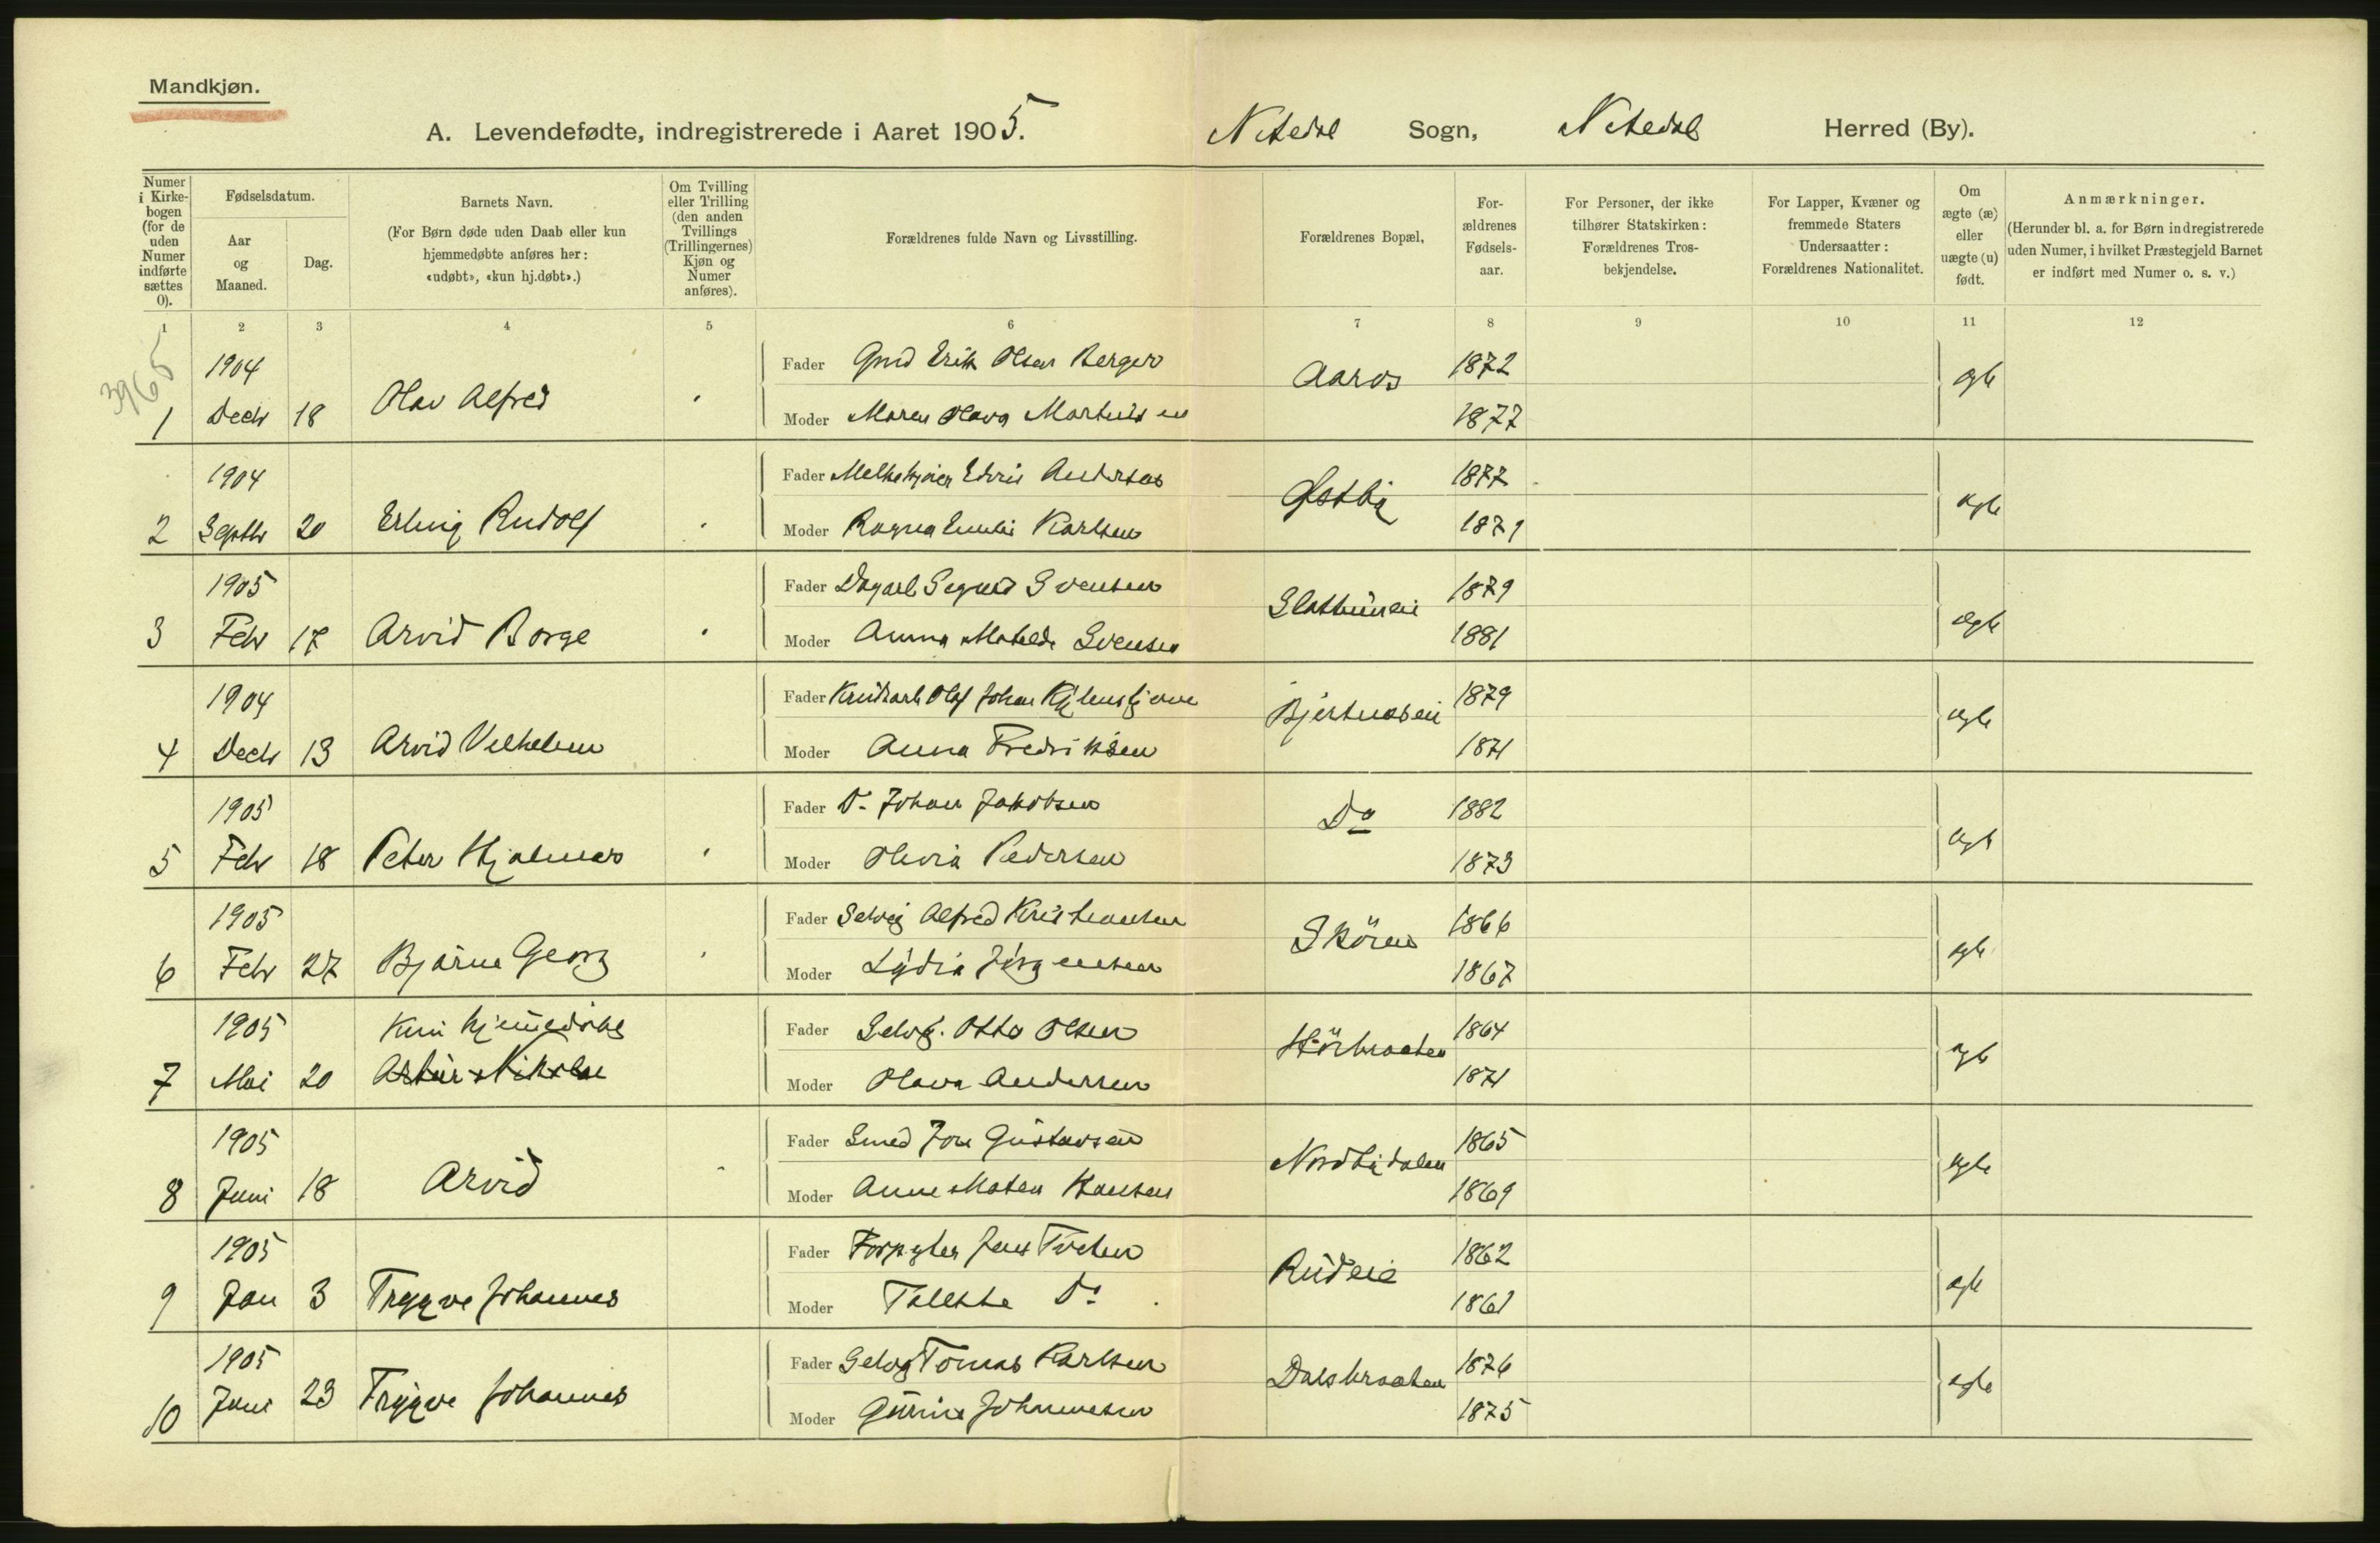 Mandkjøn.
A. Levendefødte, indregistrerede i Aaret 1905. Nitedal Sogn, Nitedal Herred (By).
Numer i Kirkebogen (for de uden Numer indførte sættes 0).
Fødselsdatum.
Aar og Maaned.
Dag.
Barnets Navn.
(For Børn døde uden Daab eller kun hjemmedøbte anføres her: «udøbt», «kun hj.døbt».)
Om Tvilling eller Trilling (den anden Tvillings (Trillingernes) Kjøn og Numer anføres).
Forældrenes fulde Navn og Livsstilling.
Forældrenes Bopæl,
For-ældrenes Fødsels-aar.
For Personer, der ikke tilhører Statskirken: Forældrenes Tros-bekjendelse.
For Lapper, Kvæner og fremmede Staters Undersaatter: Forældrenes Nationalitet.
Om ægte (æ) eller uægte (u) født.
Anmærkninger.
(Herunder bl. a. for Børn indregistrerede uden Numer, i hvilket Præstegjeld Barnet er indført med Numer o. s. v.)
1 2 3 4 5 6 7 8 9 10 11 12
3965
1904 Fader Gmd Erik Olsen Berger Aaros 1872 ægte
1 Decbr 18 Olav Alfred Moder Maren Olava Martinsen 1877
1904 Fader Andersen Østby 1877 ægte
2 Septbr 20 Erling Rudolf Moder Ragna Emilie Karlsen 1879
1905 Fader Dagarb Sigurd Svensen 1879 ægte
3 Febr 17 Arvid Borge Moder Anna Matilde Svensen 1881
1904 Fader Olaf Johan 1879 ægte
4 Decbr 13 Arvid Vilhelm Moder Anna Fredriksen 1871
1905 Fader Do Johan Jakobsen Do 1882 ægte
5 Febr 18 Peter Hjalmar Moder Olivia Pedersen 1873
1905 Fader Selvej Alfred Kristiansen Skøien 1866 ægte
6 Febr 27 Bjarne Georg Moder Lydia Jørgensen 1867
1905 Kun hjemmedøbt Fader Selvej. Otto Olsen 1864 ægte
7 Mai 20 Artur Nikolai Moder Olava Andersen 1871
1905 Fader Smed Jon Gustavsen Nordbydalen 1865 ægte
8 Juni 18 Arvid Moder Anne Matea Hansen 1869
1905 Fader Forpagter Jens Rudeie 1862 ægte
9 Jan 3 Trygve Johannes Moder Do 1861
1905 Fader Selvej Tomas Karlsen Dalsbraaten 1876 ægte
10 Juni 23 Trygve Johannes Moder Gurine Johannesen 1875